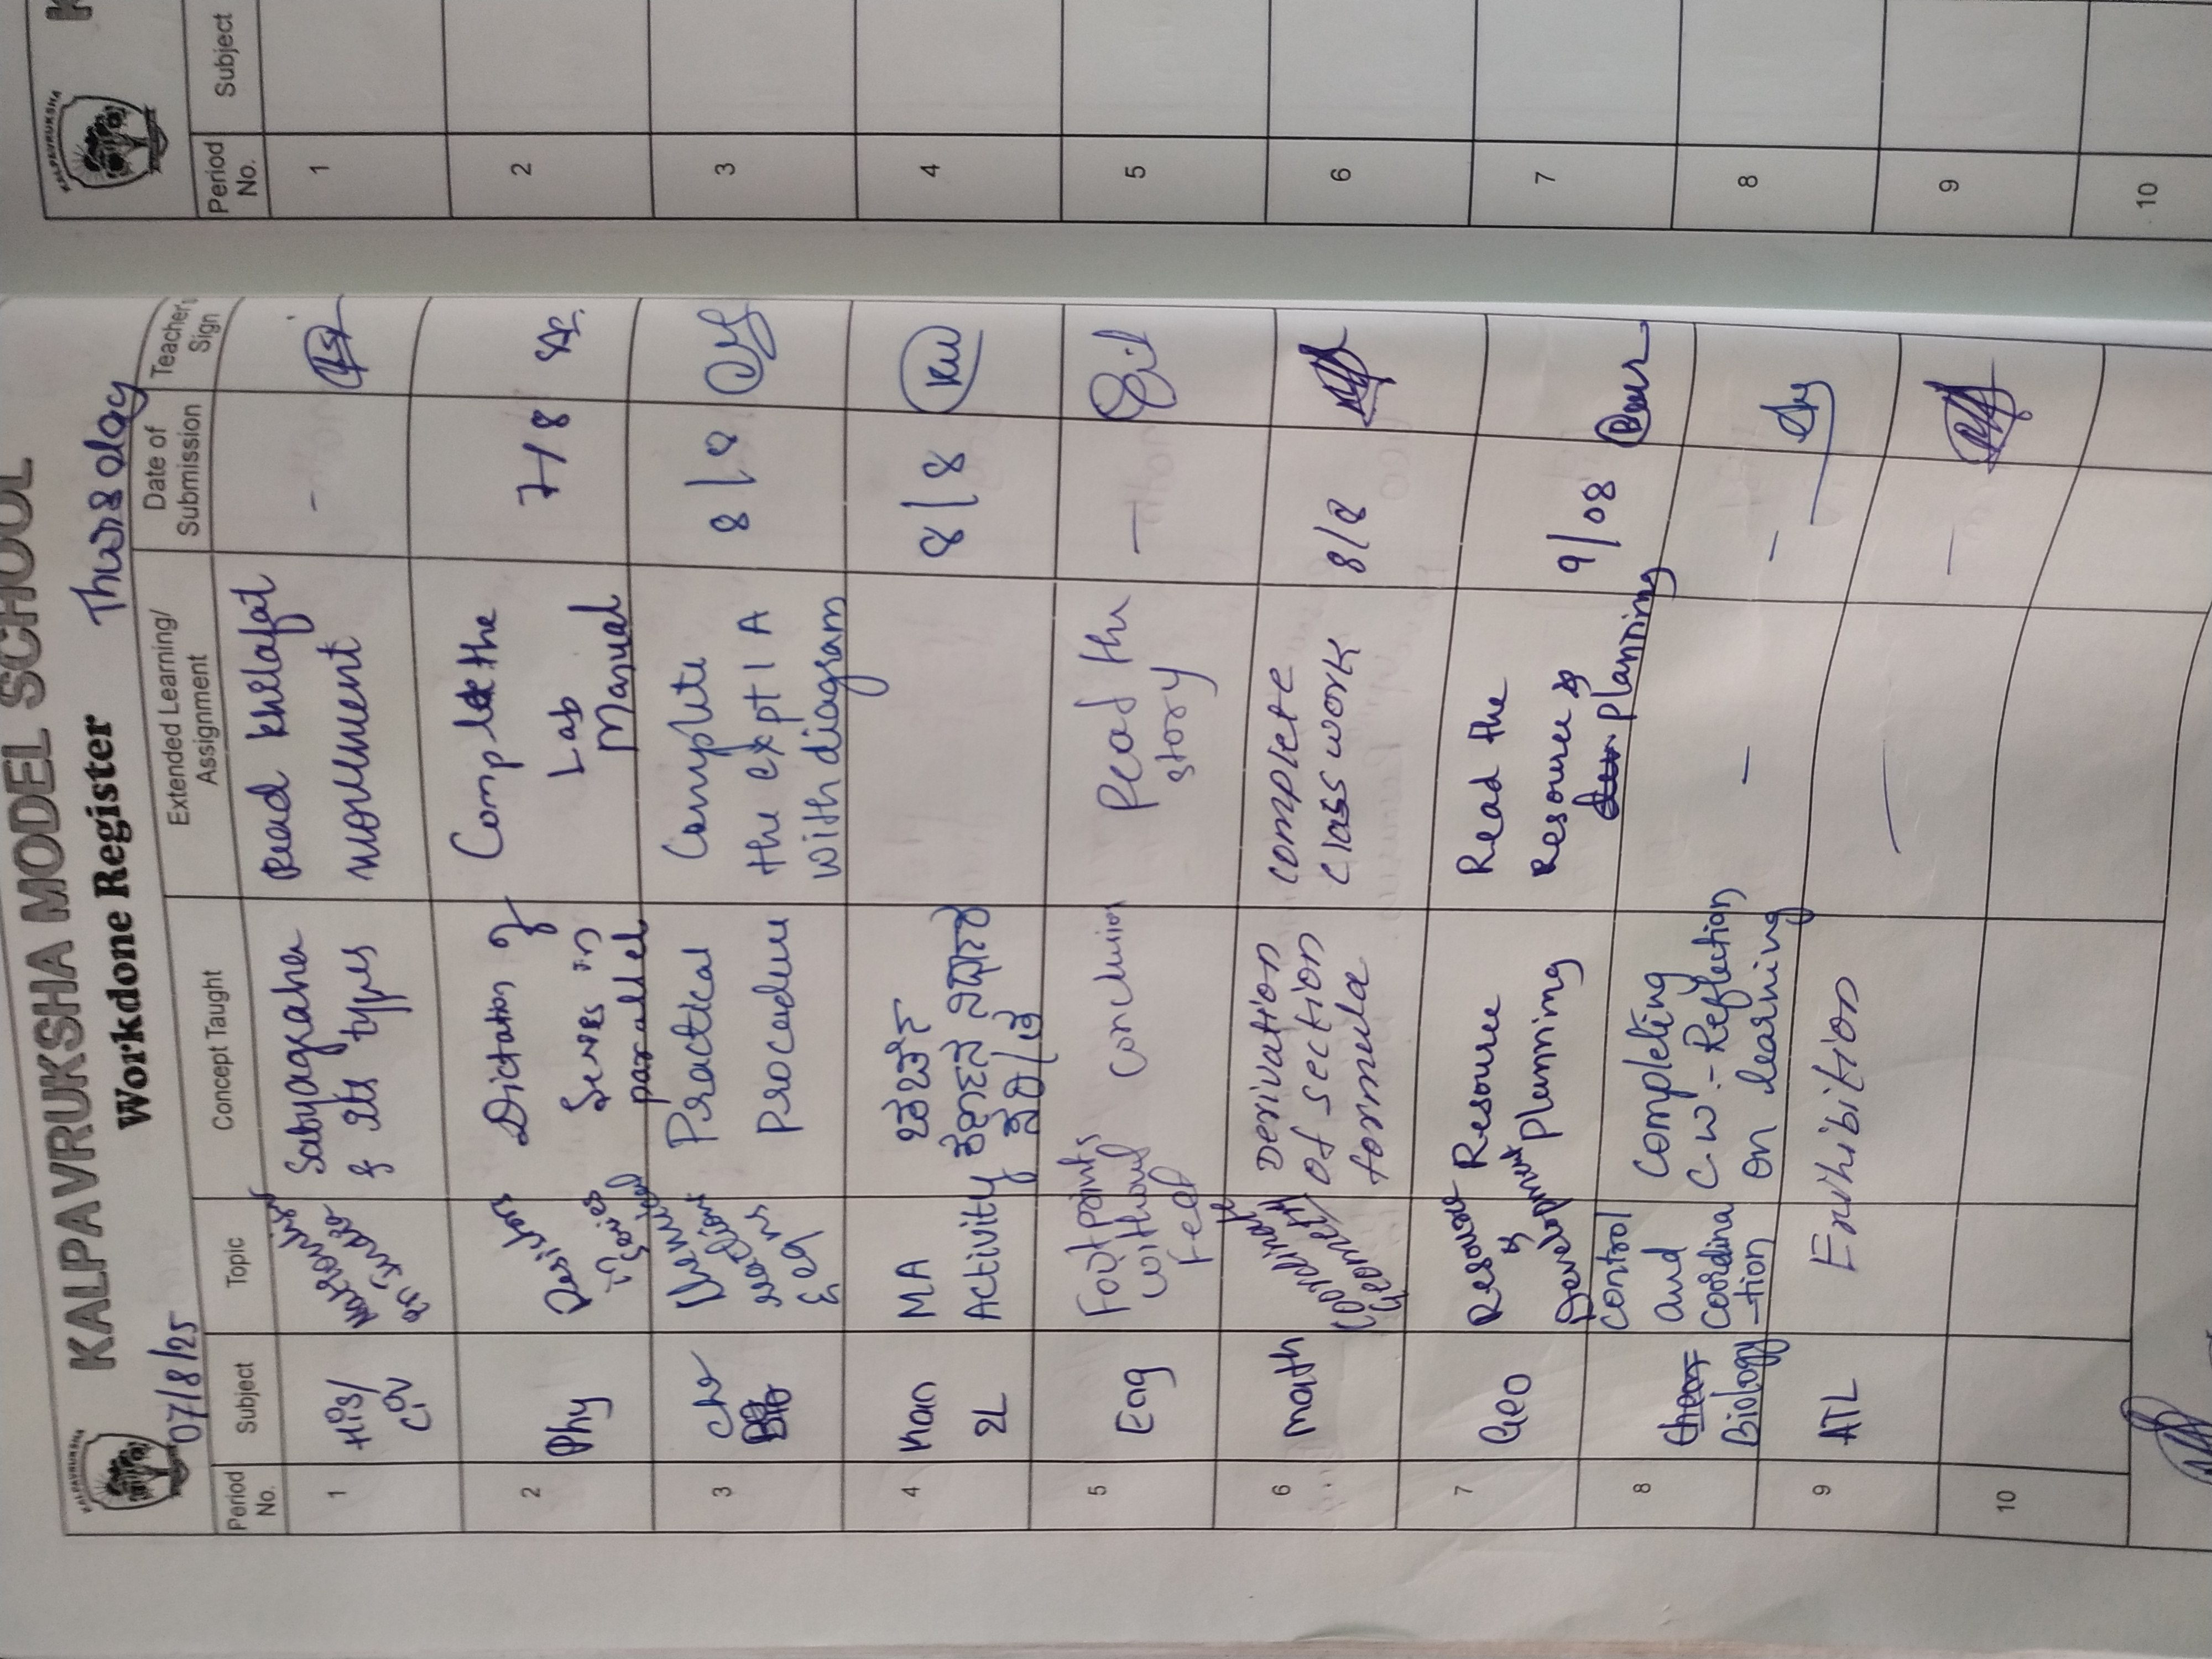 KALPAVRUKSHA MODEL SCHOOL
KALPAVRUKSHA
Workdone Register
07/8/25
Thursday
Period No.
Subject
Topic
Concept Taught
Extended Learning/ Assignment
Date of Submission
Teachers Sign
1
His/
Civ
Satyagraha
& its types
Read khilafat
movement
-
2
Phy
Dictation of
Series in
parallel
Complete the
Lab
Manual
7/8
3
Che
Practical
Procedure
Complete
the expt 1 A
with diagram
8/8
4
Kan
2L
MA
Activity
8/8
5
Eng
Footprints
without
Feet
Conclusion
Read the
story
-
6
Math
Coordinate
Geometry
Derivation
of section
formula
complete
class work
8/8
7
Geo
Resource
&
Development
Resource
Planning
Read the
Resource &
Planning
9/08
8
Biology
Control
and
Coordina
-tion
Completing
C.W:- Reflection
on learning
-
-
9
ATL
Exihibition
-
10
KALPAVRUKSHA
K
Period No.
Subject
1
2
3
4
5
6
7
8
9
10